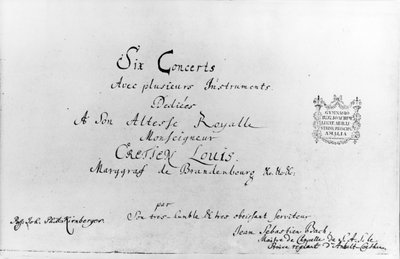 Six Concerts
Avec plusieurs Instruments.
Dediées
A Son Altesse Royalle
Monseigneur
CRETIEN LOUIS.
Marggraf de Brandenbourg &c.&c.&c.
par
Son tres-humble & tres obeissant serviteur
Jean Sebastien Bach,
Maitre de Chapelle de S. A. S. le
Prince regnant d'Anhalt-Coethen.
Joh. Kirnberger.
GYMNASIO
AMALIA